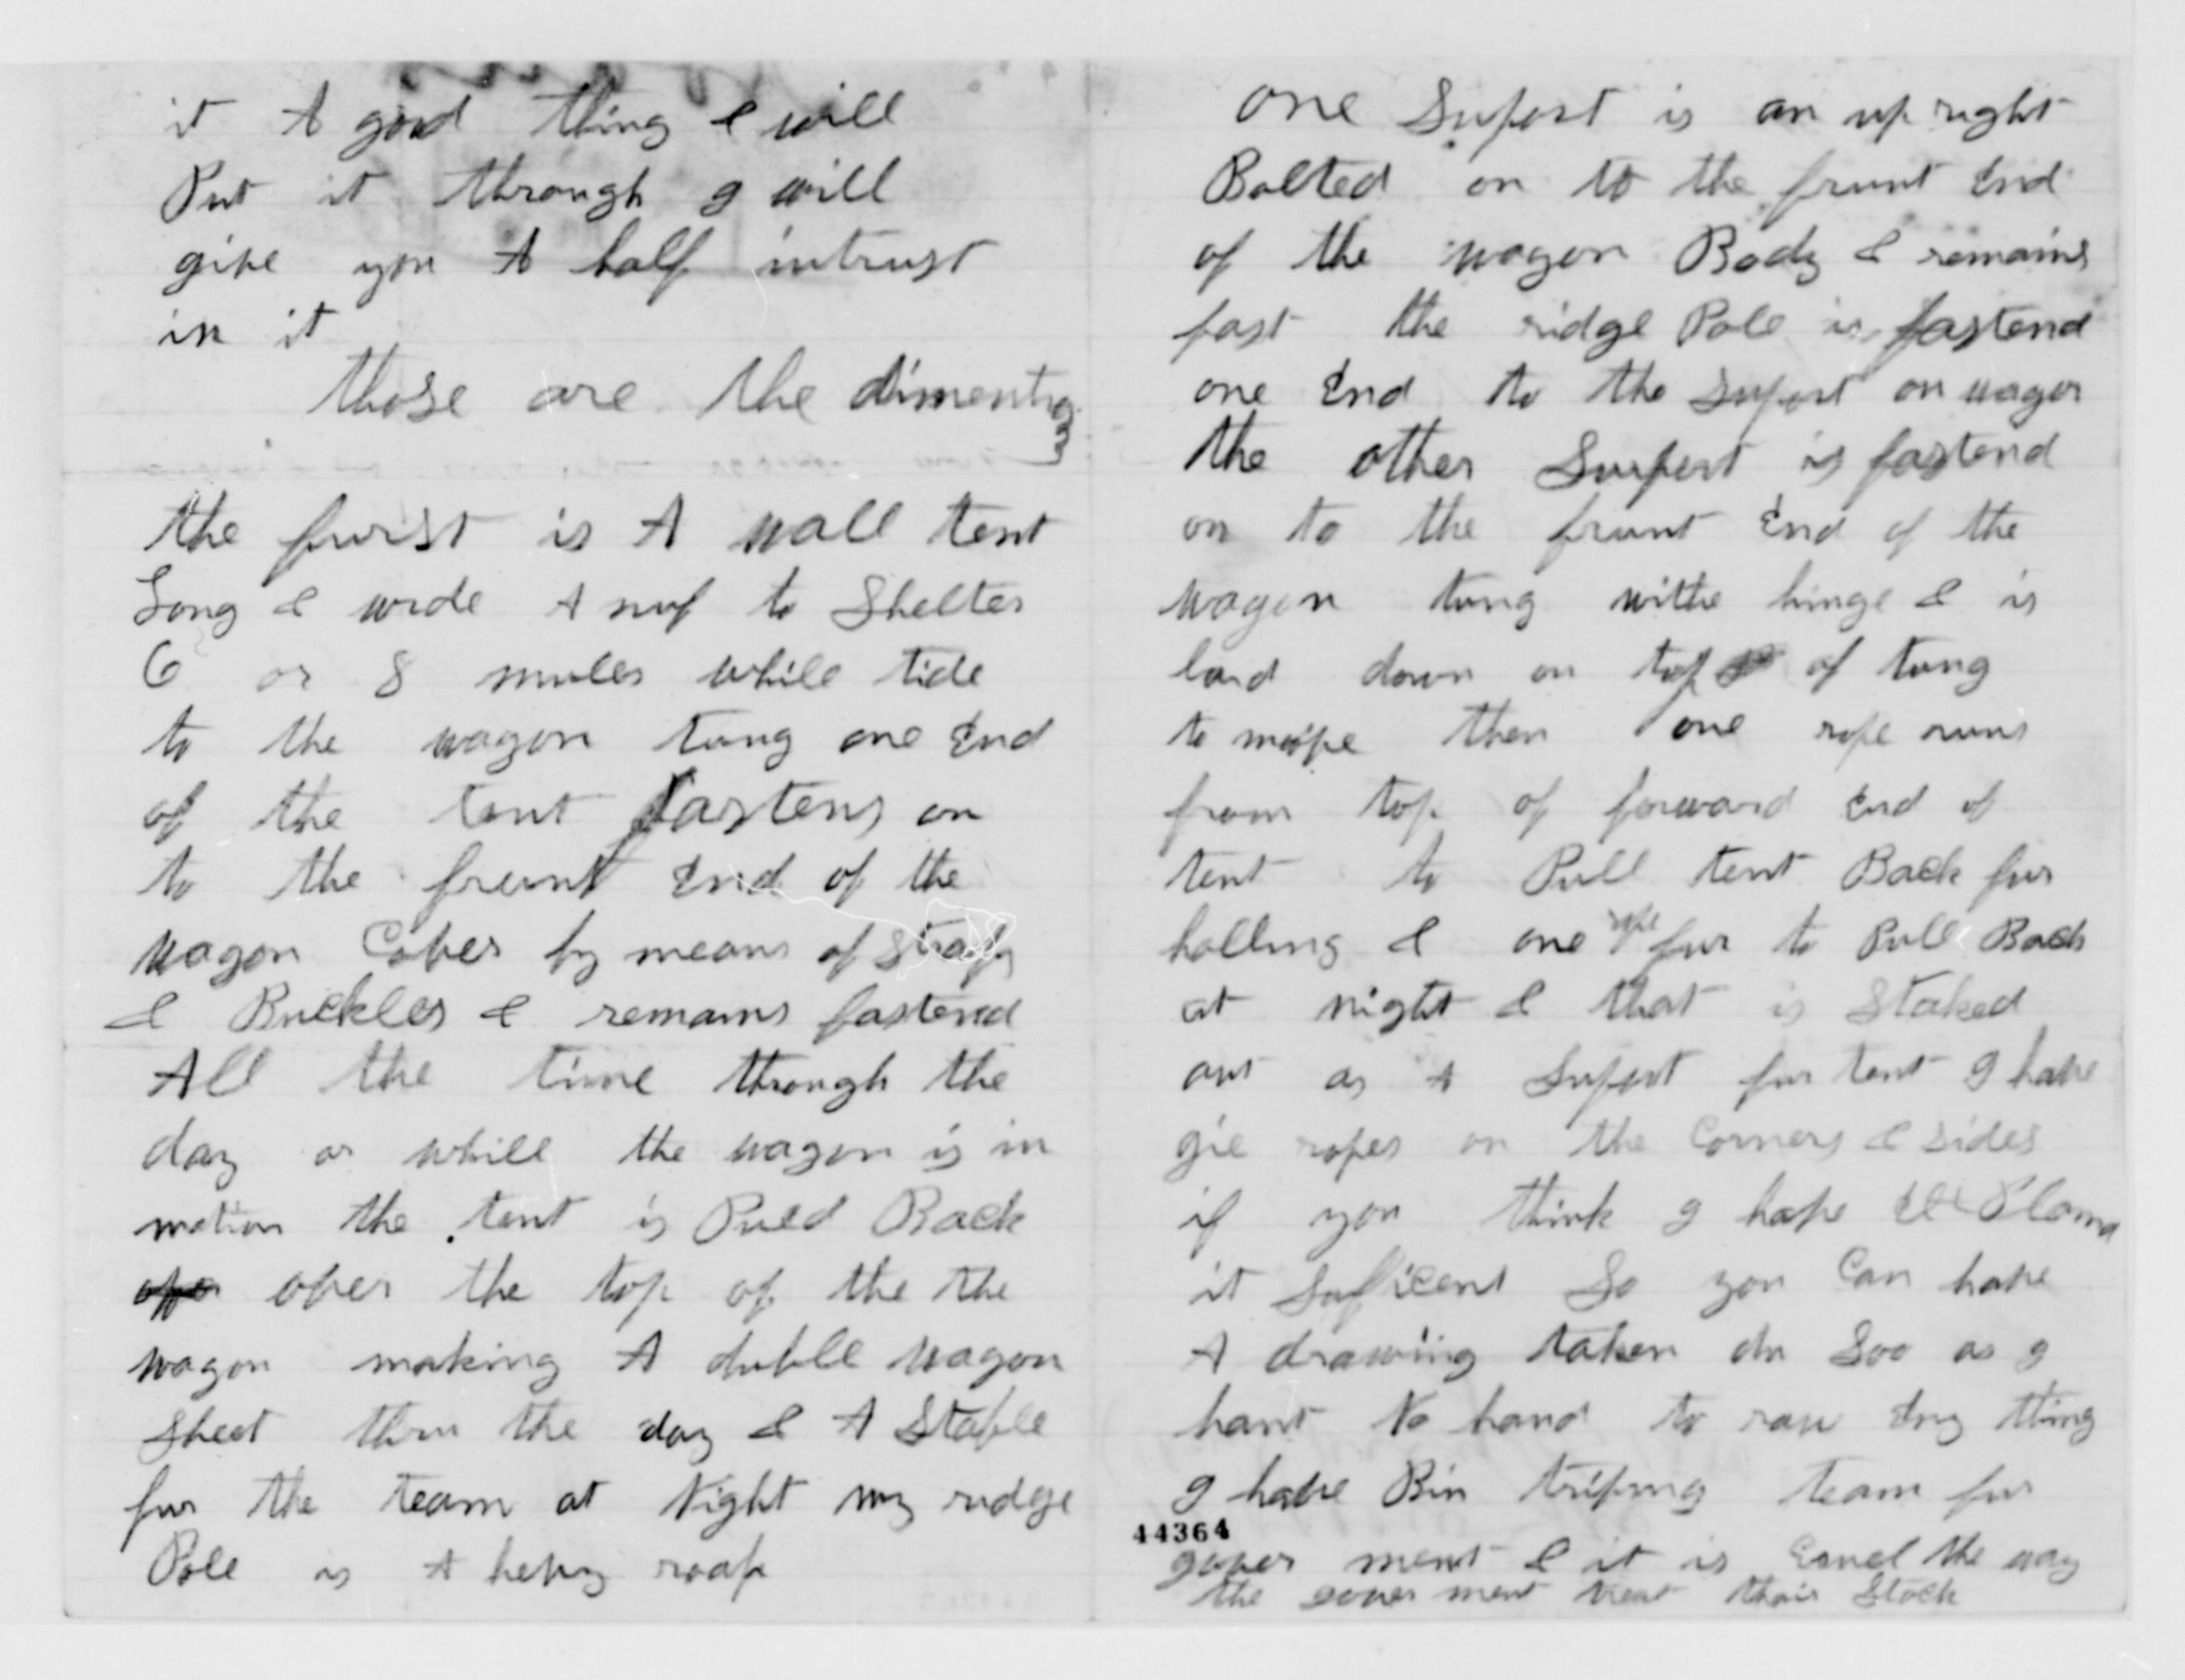 it A good thing & will
Put it through I will
give you A half intrust
in it
those are the dimentions
the furst is A wall tent
Long & wide A nuf to Shelter
6 or 8 mules while tide
to the wagon tung one End
of the tent fastens on
to the frunt End of the
wagon Cover by means of straps
& Buckles & remains fastend
All the time through the
day or while the wagon is in
motion the tent is Puld Back
over the top of the the
wagon making A duble wagon
Sheet thru the day & A Stable
fur the team at Night my ridge
Pole is A hevy roap
one Suport is an up right
Bolted on to the frunt End
of the wagon Body & remains
fast the ridge Pole is fastend
one End to the Suport on wagon
the other Surport is fastend
on to the frunt End of the
wagon tung withe hinge & is
laid down on top of tung
to move then one rope runs
from top of forward End of
tent to Pull tent Back fur
halling & one rope fur to Pull Back
at night & that is Staked
out as A Suport fur tent I have
gie ropes on the Corners & sides
if you think I have
it Suficent So you Can have
A drawing taken do Soo as I
hant No hand to raw Eny thing
I have Bin driving team fur
44364
gover ment & it is Cruel the way
the gover ment treat thair Stock